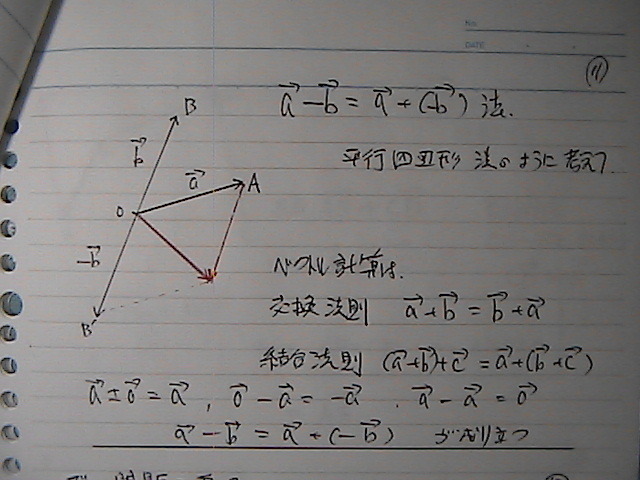 No.
DATE
(11)
a⃗ - b⃗ = a⃗ + (-b⃗) 法.
平行四辺形 法のように考えて
B
b⃗
a⃗
A
O
-b⃗
B'
ベクトル計算は.
交換法則 a⃗ + b⃗ = b⃗ + a⃗
結合法則 (a⃗+b⃗)+c⃗ = a⃗+(b⃗+c⃗)
a⃗ ± 0⃗ = a⃗ , 0⃗ - a⃗ = -a⃗ , a⃗ - a⃗ = 0⃗
a⃗ - b⃗ = a⃗ + (-b⃗) が成り立つ